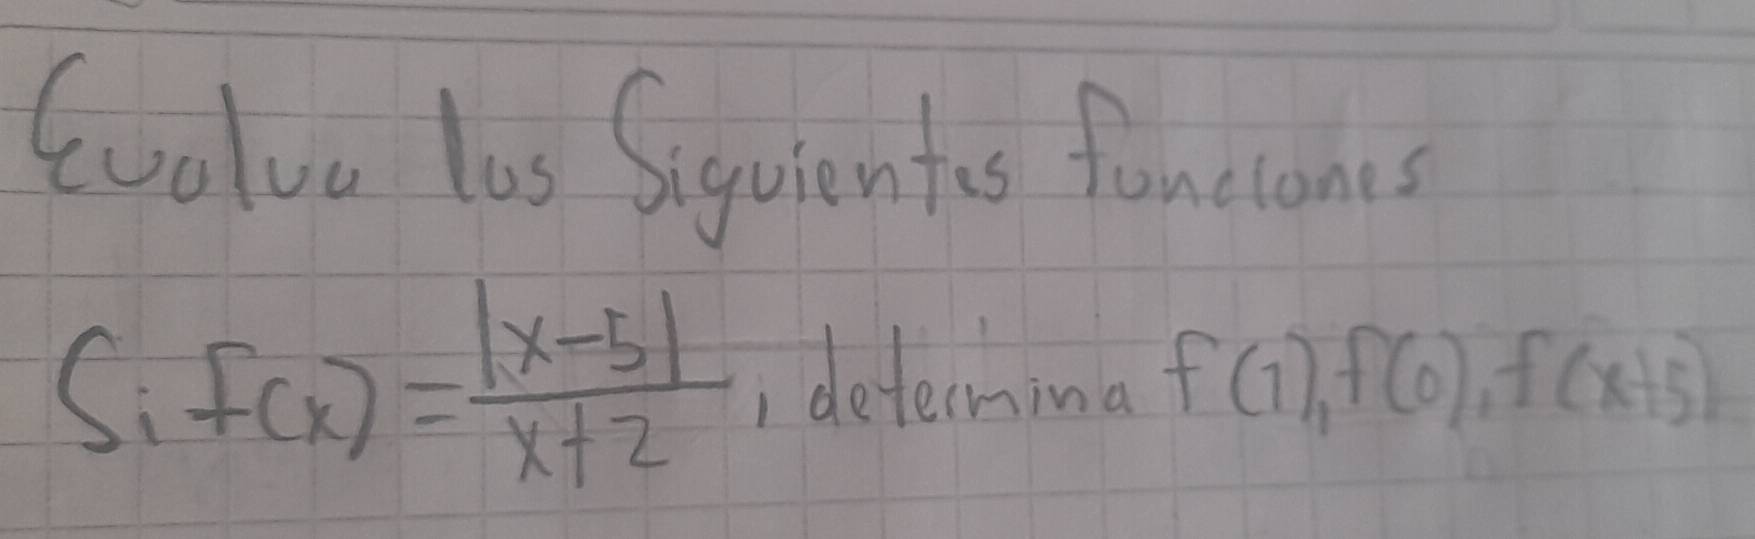 Evalua las Siguientes funciones
Si f(x) = |x-5| / x+2, determina f(1), f(0), f(x+5)